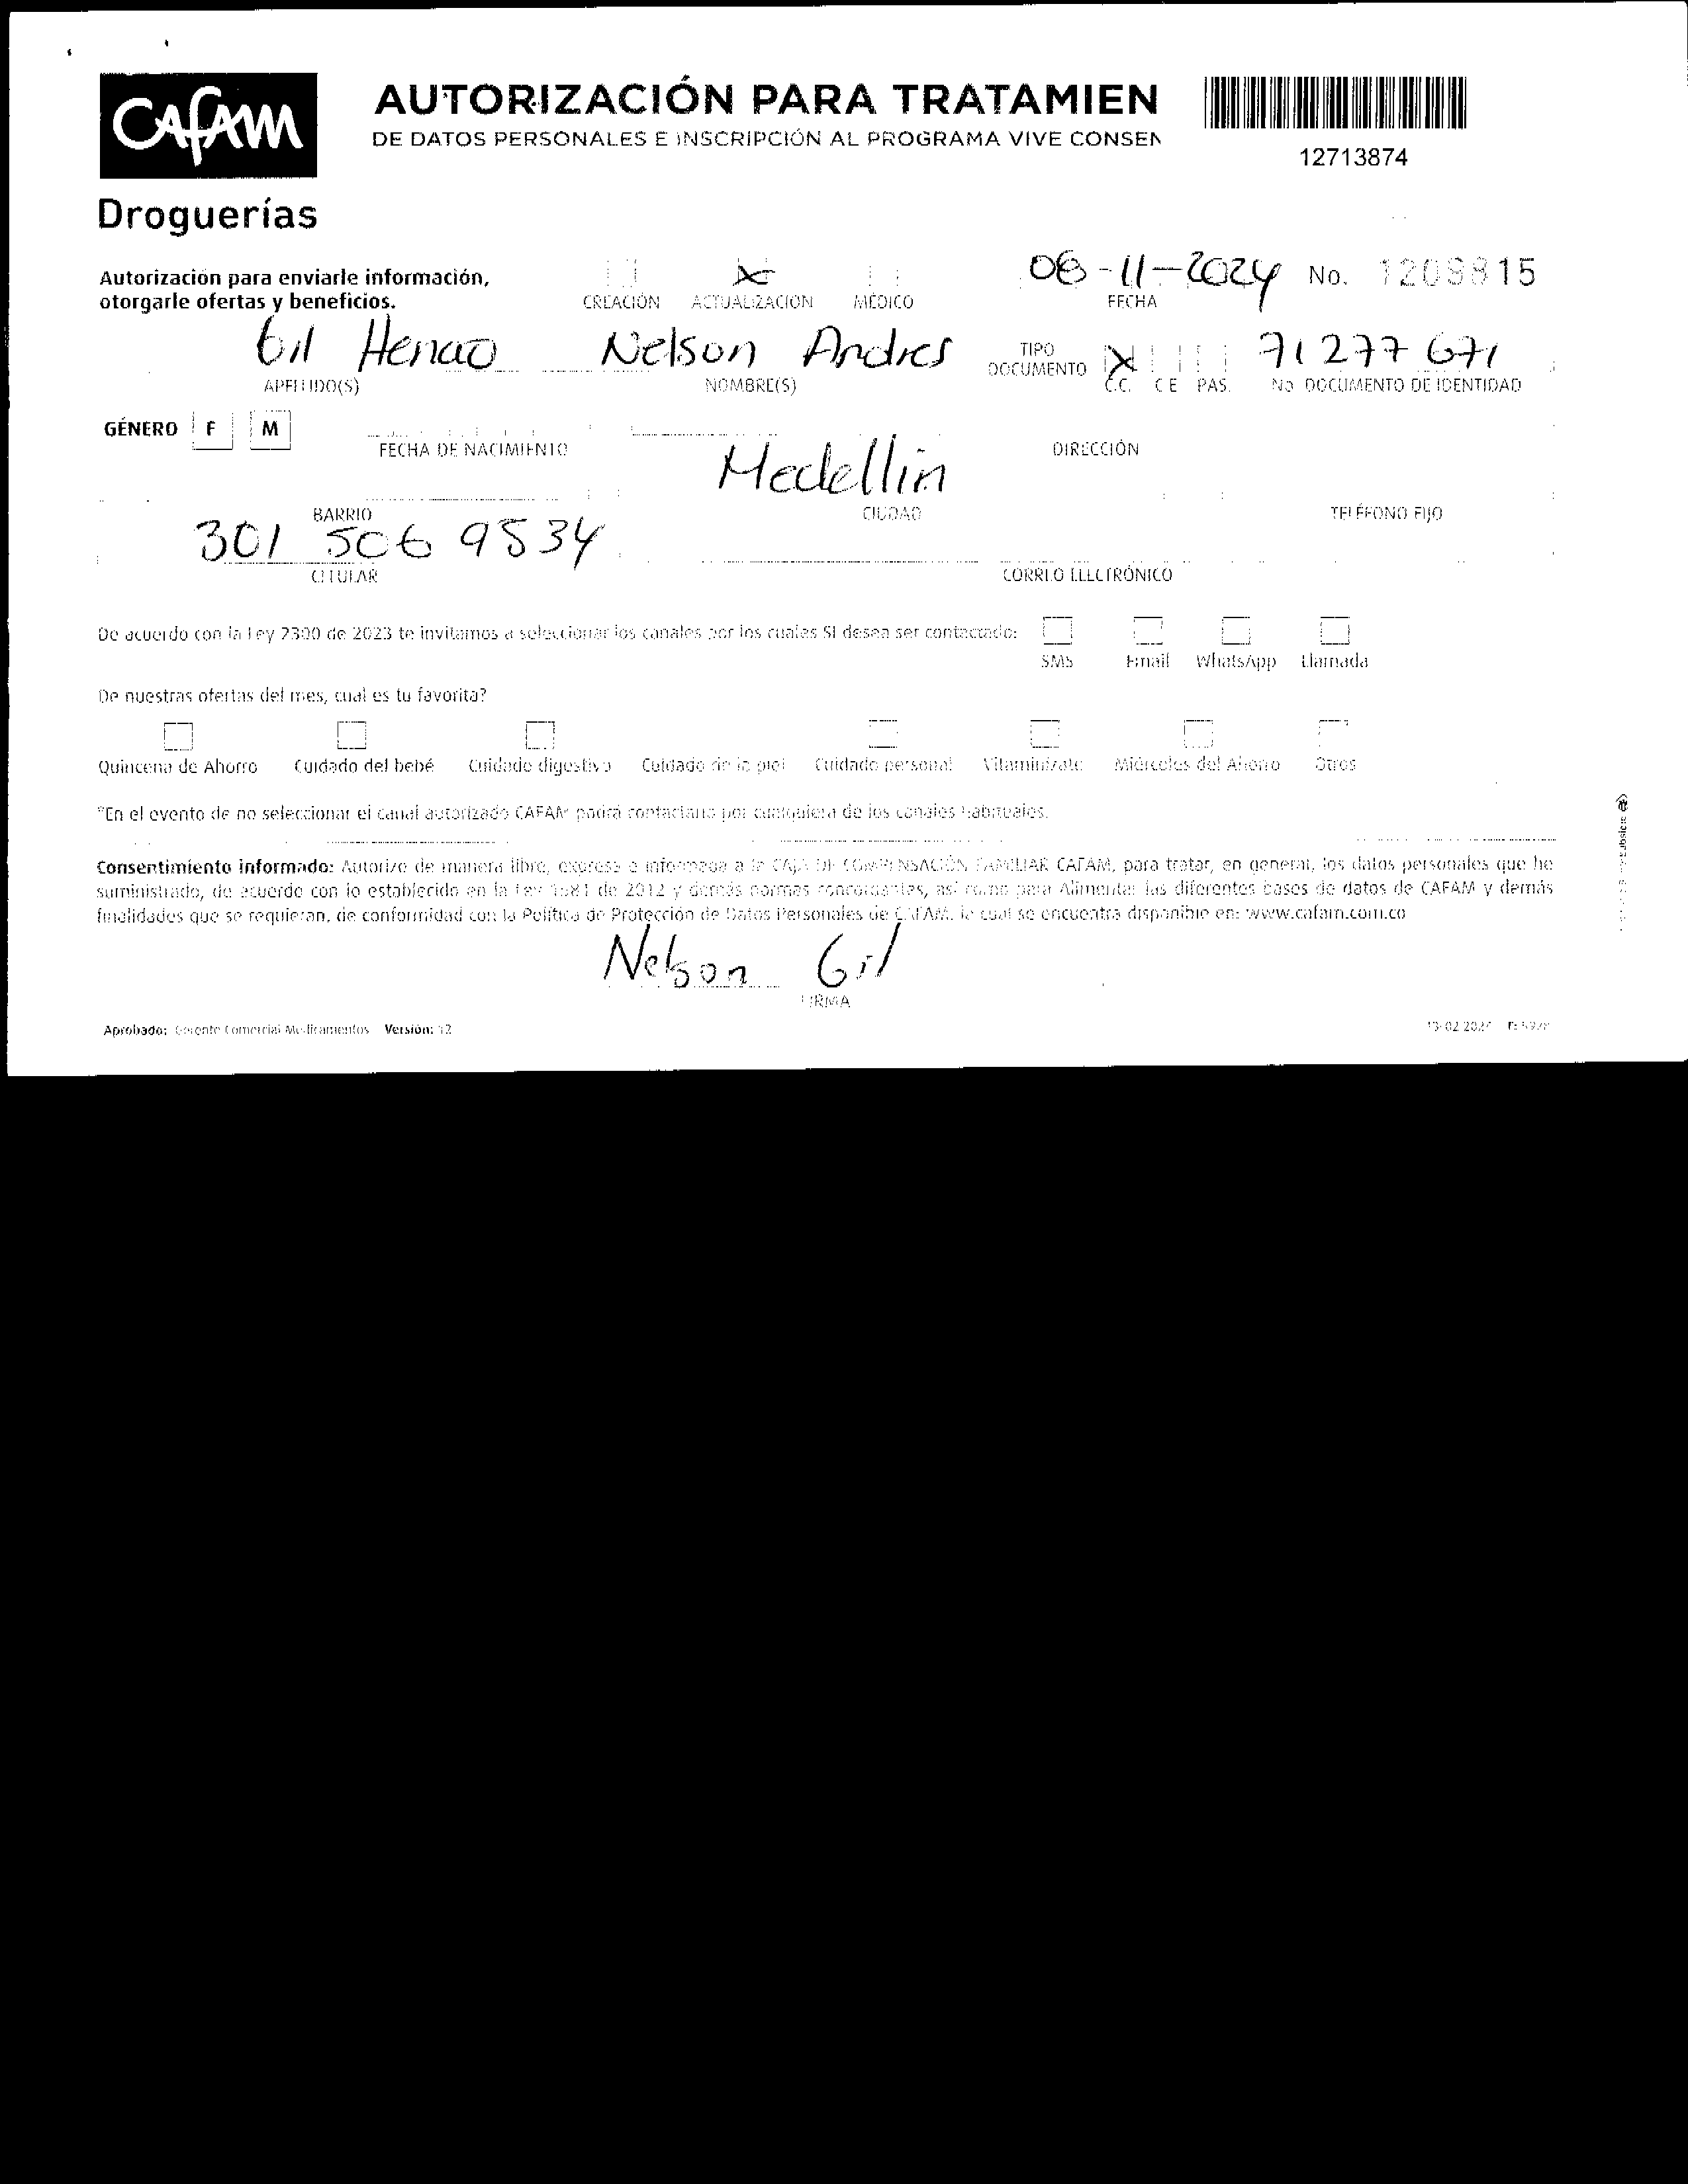 CAFAM
AUTORIZACIÓN PARA TRATAMIEN
DE DATOS PERSONALES E INSCRIPCIÓN AL PROGRAMA VIVE CONSEN
12713874
Droguerías
Autorización para enviarle información,
otorgarle ofertas y beneficios.
CREACIÓN ACTUALIZACIÓN MÉDICO
08-11-2024 No. 1209815
FECHA
Gil Henao Nelson Andres TIPO DOCUMENTO X 71277671
APELLIDO(S) NOMBRE(S) C.C. CE PAS. No DOCUMENTO DE IDENTIDAD
GÉNERO F M
FECHA DE NACIMIENTO DIRECCIÓN
Medellin
BARRIO CIUDAD TELÉFONO FIJO
301 506 9534
CELULAR CORREO ELECTRÓNICO
De acuerdo con la Ley 2300 de 2023 te invitamos a seleccionar los canales por los cuales SI desea ser contactado:
SMS Email WhatsApp Llamada
De nuestras ofertas del mes, cual es tu favorita?
Quincena de Ahorro Cuidado del bebé Cuidado digestivo Cuidado de la piel Cuidado personal Vitamínizate Miércoles del Ahorro Otros
*En el evento de no seleccionar el canal autorizado CAFAM podrá contactarlo por cualquiera de los canales habituales.
Consentimiento informado: Autorizo de manera libre, expresa e informada a la CAJA DE COMPENSACIÓN FAMILIAR CAFAM, para tratar, en general, los datos personales que he
suministrado, de acuerdo con lo establecido en la Ley 1581 de 2012 y demás normas concordantes, así como para Alimentar las diferentes bases de datos de CAFAM y demás
finalidades que se requieran, de conformidad con la Política de Protección de Datos Personales de CAFAM, la cual se encuentra disponible en: www.cafam.com.co
Nelson Gil
FIRMA
Aprobado: Gerente Comercial Medicamentos Versión: 12